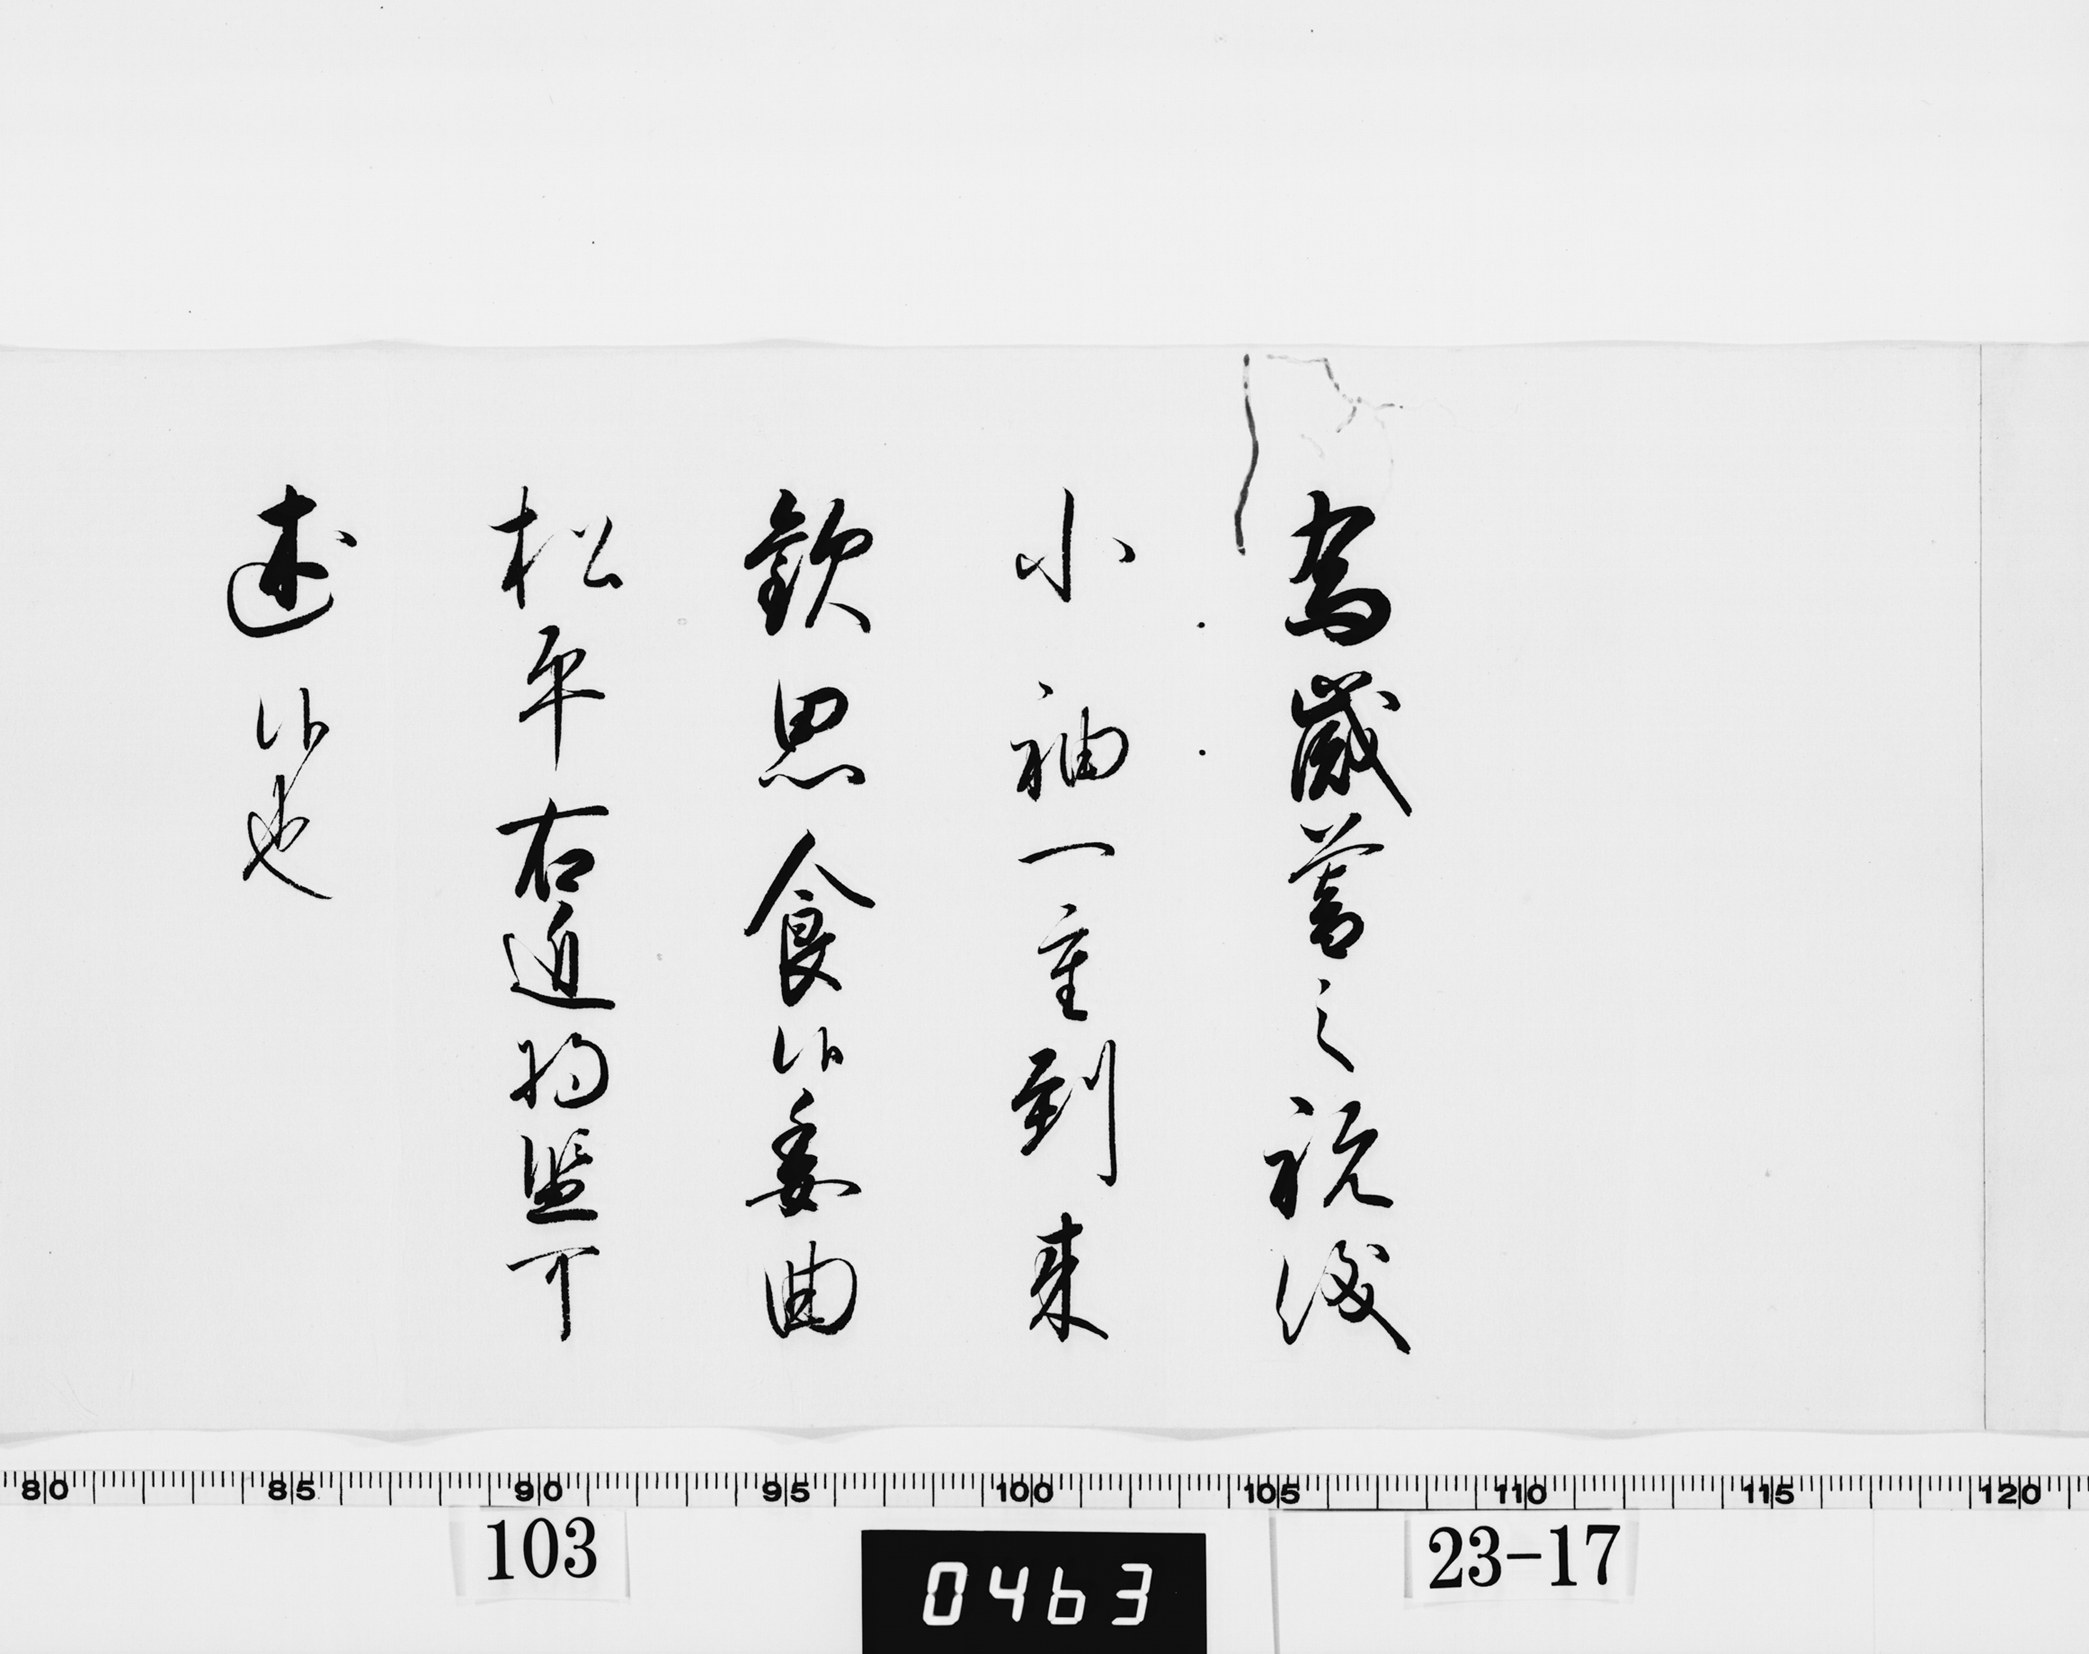 為歳暮之祝儀
小袖一重到来
歓思食候委曲
松平右近将監可
述候也
80 85 90 95 100 105 110 115 120
103
0463
23-17